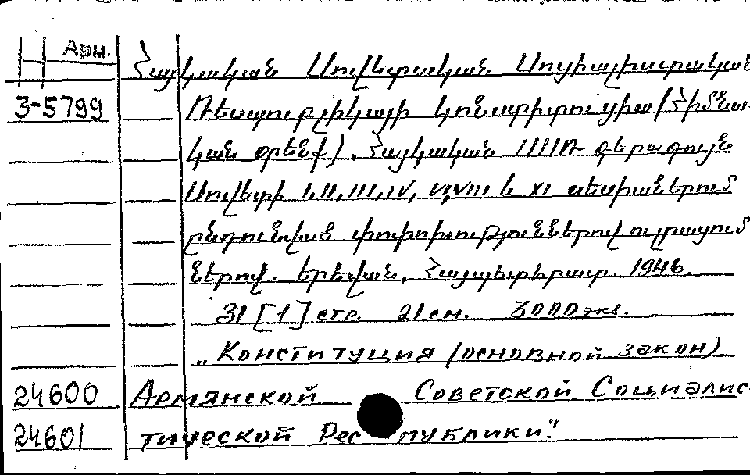 Арм.
Հայկական Սովետական Սոցիալիստական
3-5799 Ռեսպուբլիկայի կոնստիտուցիա (Հիմնա
կան օրենք), Հայկական ՍՍՍՌ գերագույն
Սովետի I, II, III, IV, VI, VII և XI սեսիաներում
ընդունված փոփոխություններով ու լրացում
ներով. Երևան, Հայպետհրատ. 1948.
31 [1] стр. 21 см. 3000 экз.
„Конституция (основной закон)
24600 Армянской Советской Социалис
24601 тической Республики".